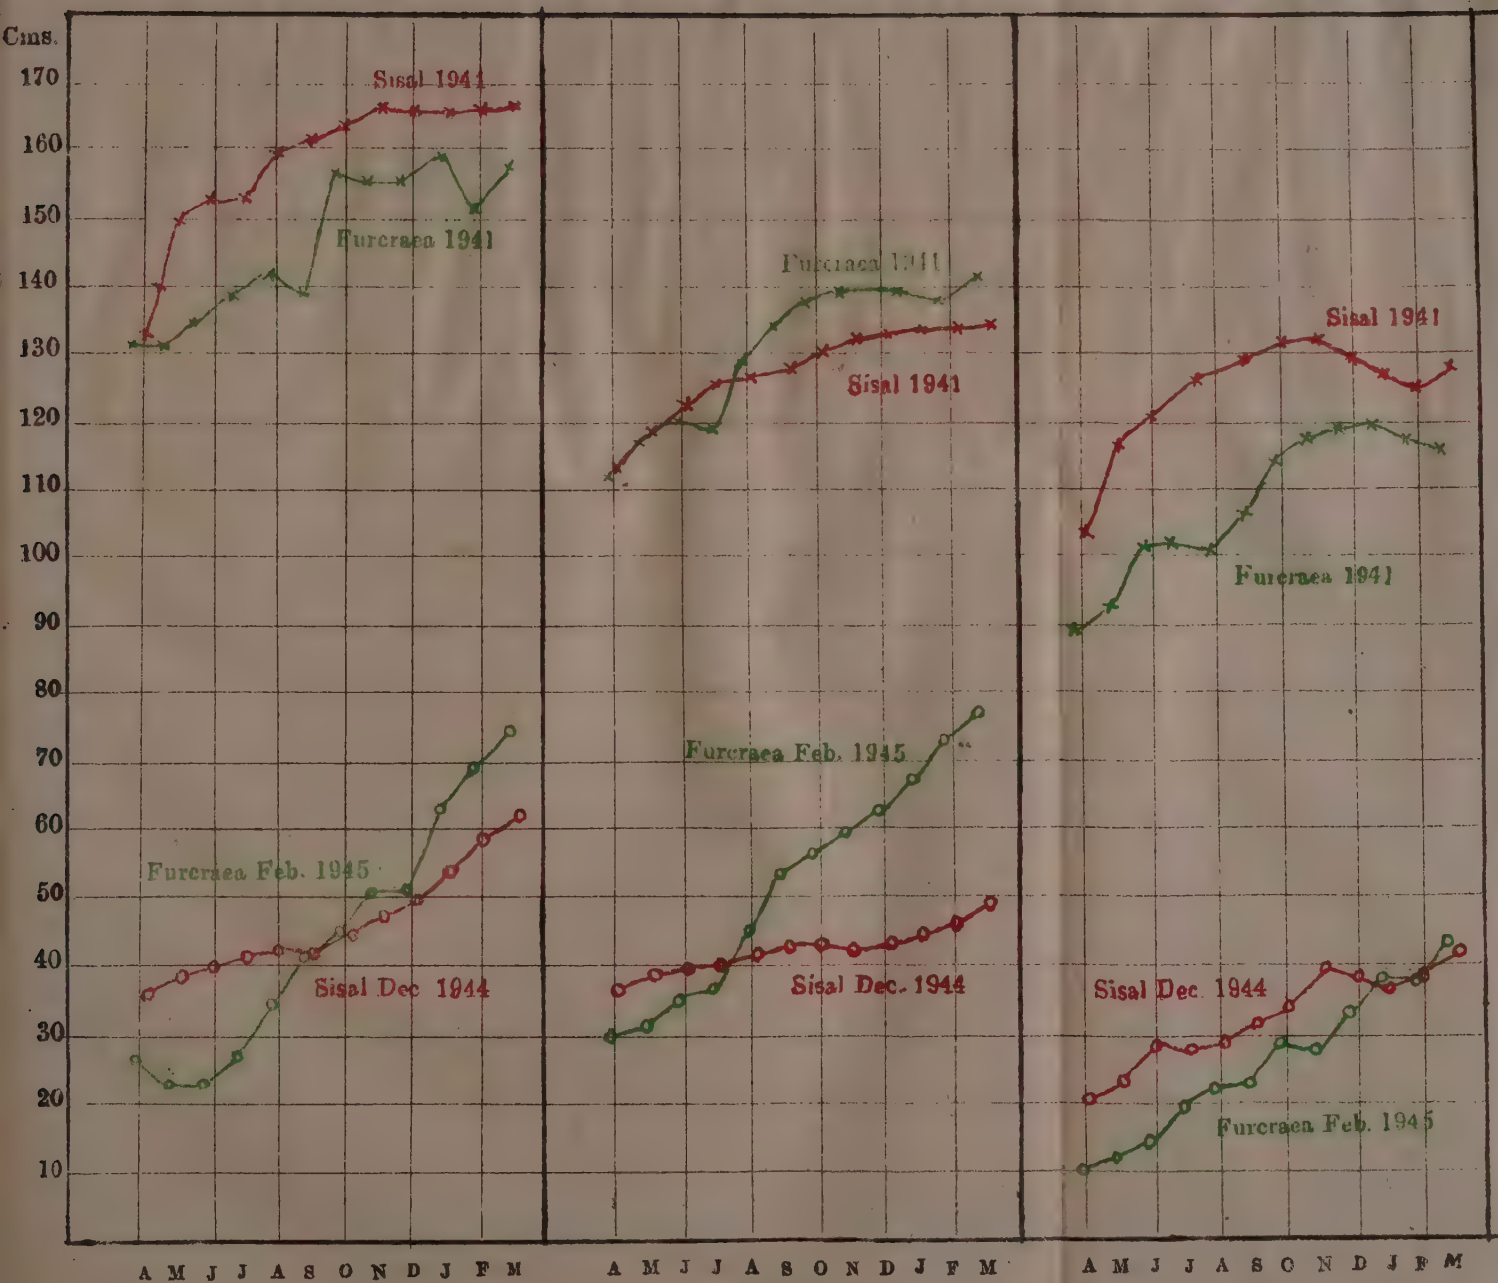 Cms.
170
160
150
140
130
120
110
100
90
80
70
60
50
40
30
20
10
Sisal 1941
Furcraea 1941
Furcraea Feb. 1945
Sisal Dec 1944
A M J J A S O N D J F M
Furcraea 1941
Sisal 1941
Furcraea Feb. 1945
Sisal Dec. 1944
A M J J A S O N D J F M
Sisal 1941
Furcraea 1941
Sisal Dec. 1944
Furcraea Feb. 1945
A M J J A S O N D J F M